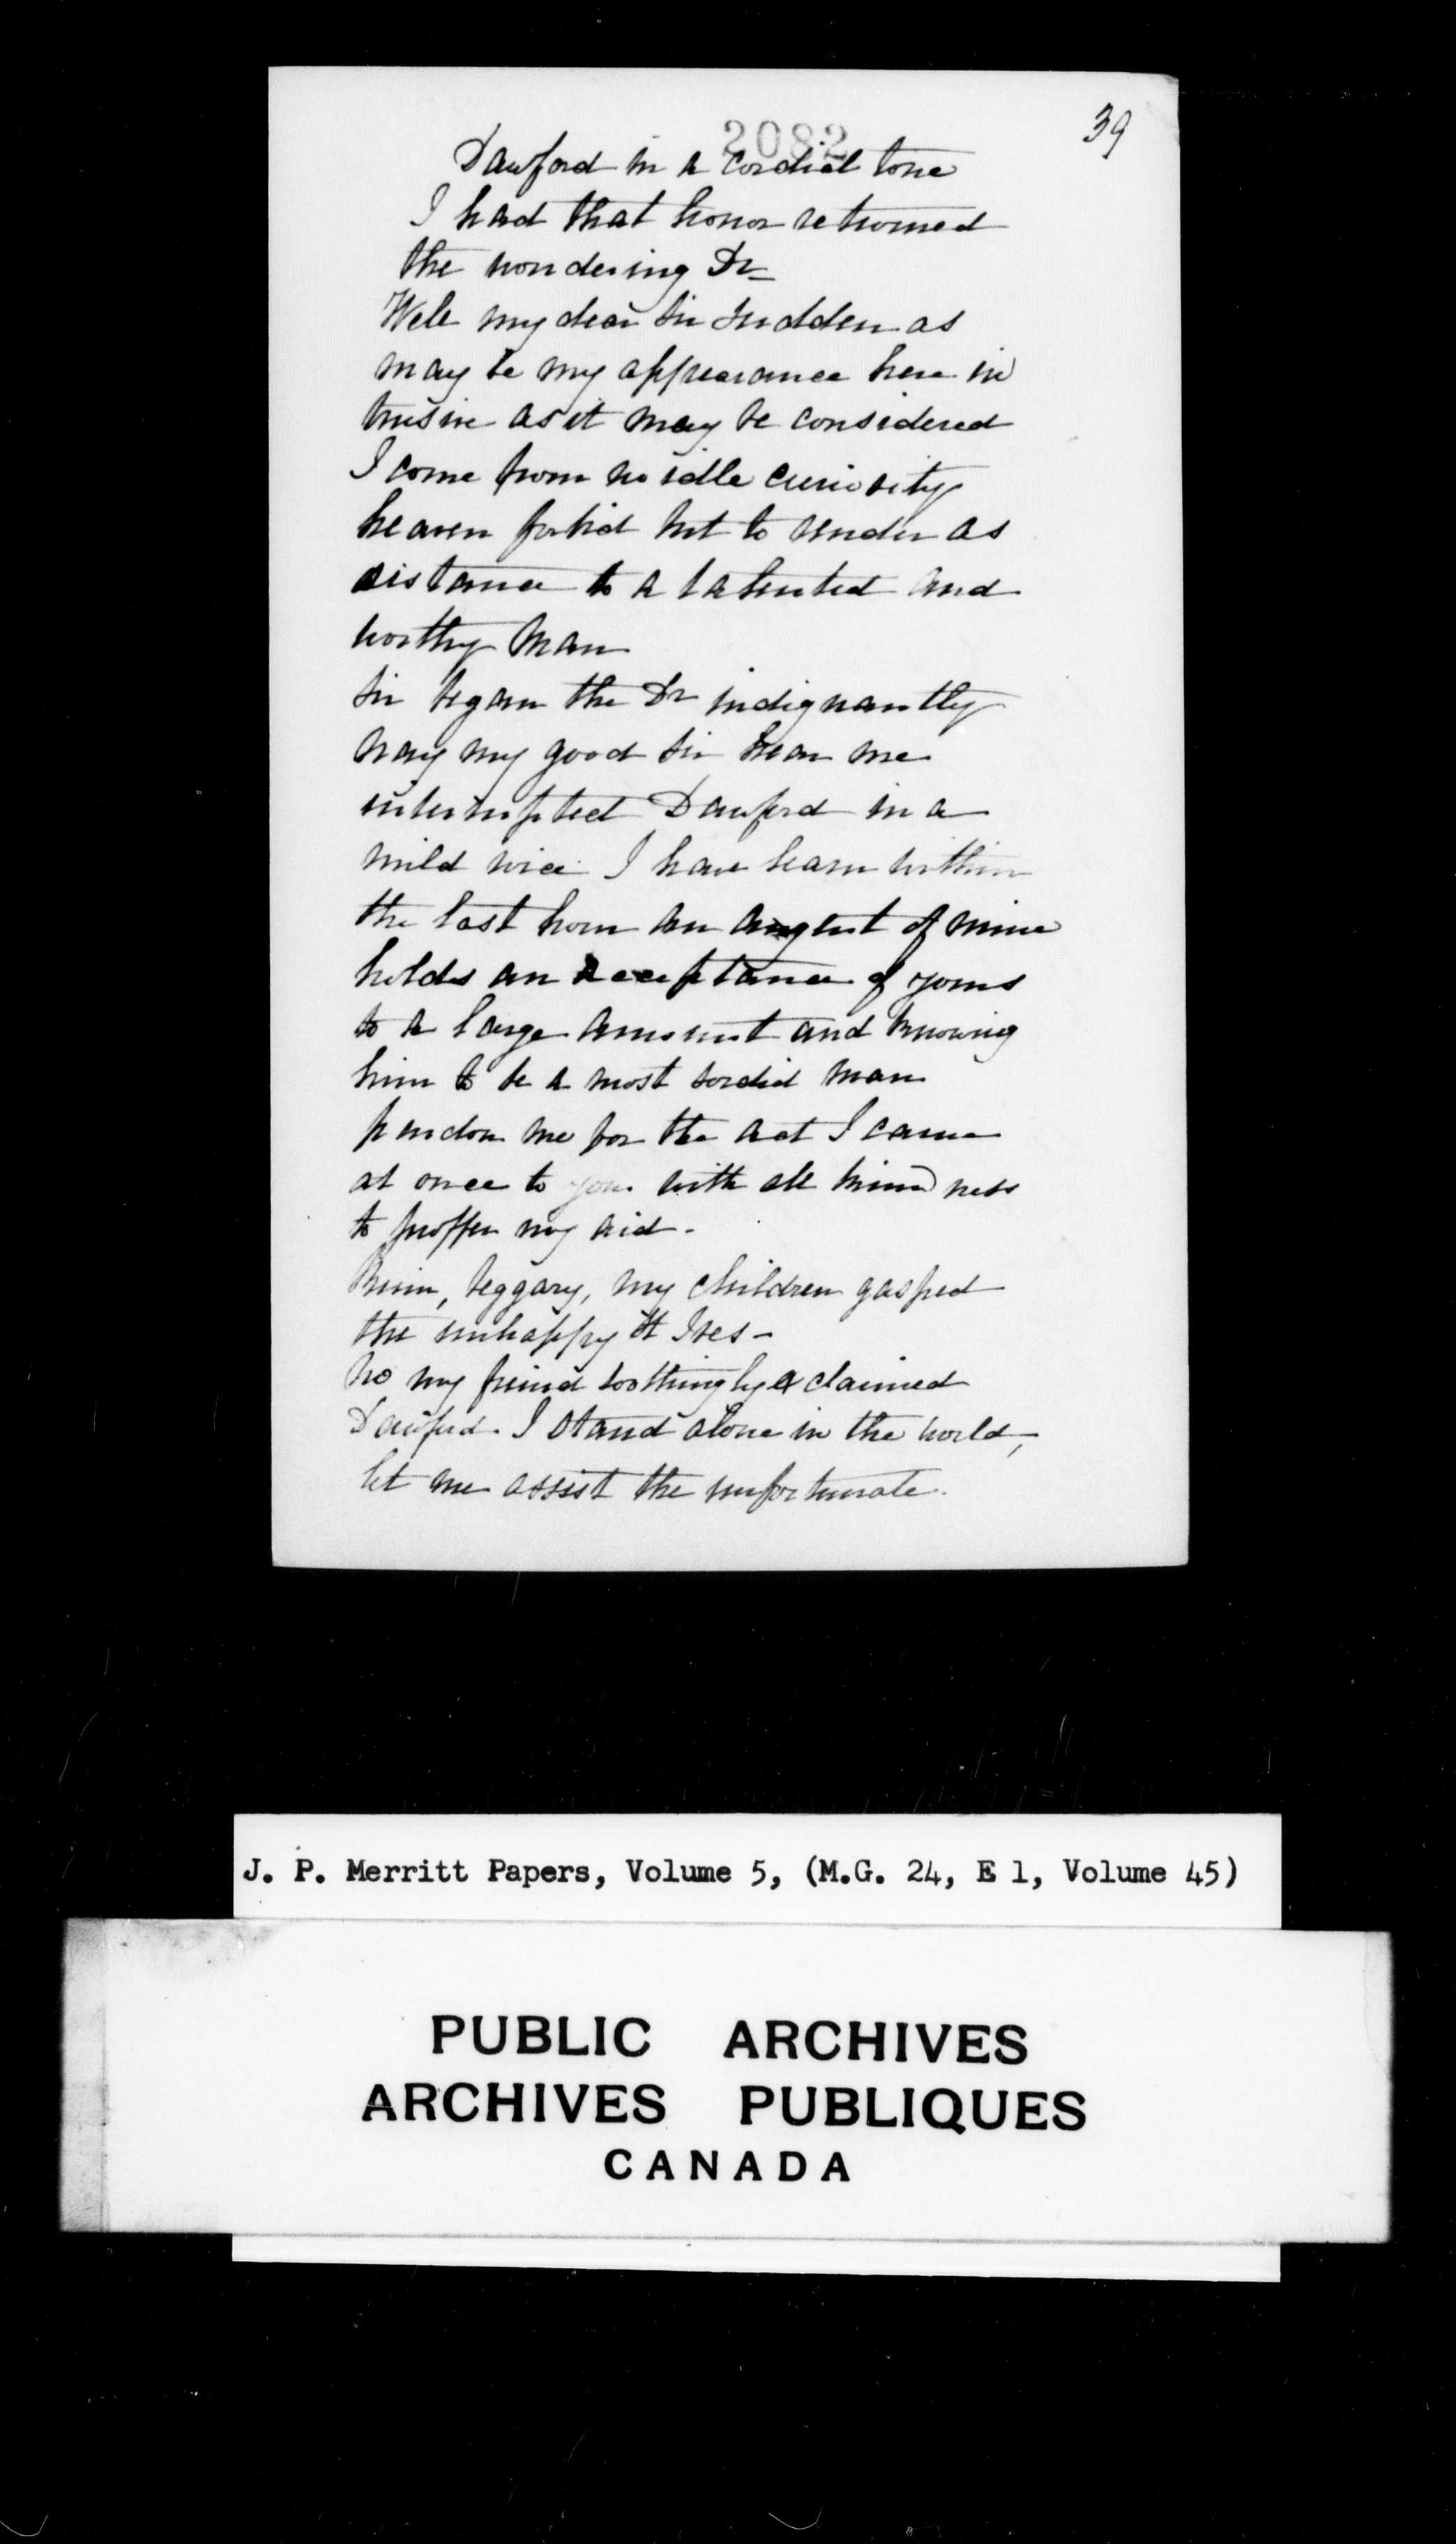 39
2082
Dawford in a cordial tone
I had that honor returned
the wondering Dr
Well my dear Sir sudden as
may be my appearance here in
trusive as it may be considered
I come from no idle curiosity
heaven forbid but to render as
sistance to a talented and
worthy man
Sir began the Dr indignantly
Nay my good Sir hear me
interrupted Dawford in a
mild voice I have learn within
the last hour an angent of mine
holds an acceptance of yours
to a large amount and knowing
him to be a most sordid man
pardon me for the act I came
at once to you with all kindness
to proffer my aid -
Ruin, beggary, my children gasped
the unhappy St Ives -
No my friend soothingly exclaimed
Dawford. I stand alone in the world,
let me assist the unfortunate.
J. P. Merritt Papers, Volume 5, (M.G. 24, E 1, Volume 45)
PUBLIC ARCHIVES
ARCHIVES PUBLIQUES
CANADA